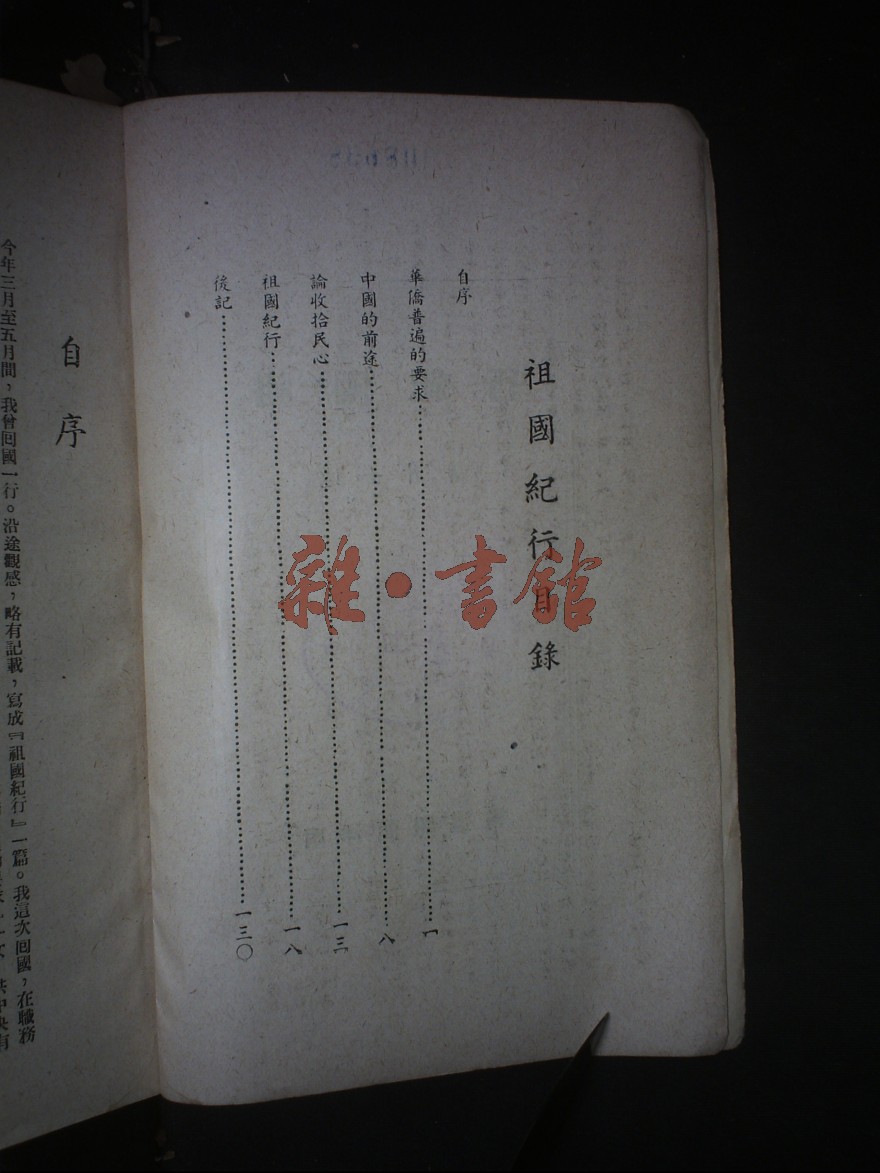 祖國紀行目錄
自序
華僑普遍的要求…………一
中國的前途…………八
論收拾民心…………一三
祖國紀行…………一八
後記…………一三〇
雜·書館
自序
今年三月至五月間，我曾回國一行。沿途觀感，略有記載，寫成『祖國紀行』一篇。我這次回國，在職務